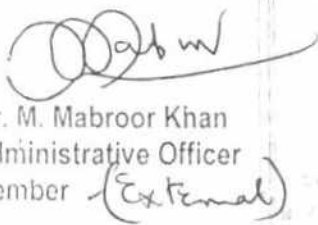 r. M. Mabroor Khan
dministrative Officer
ember (External)